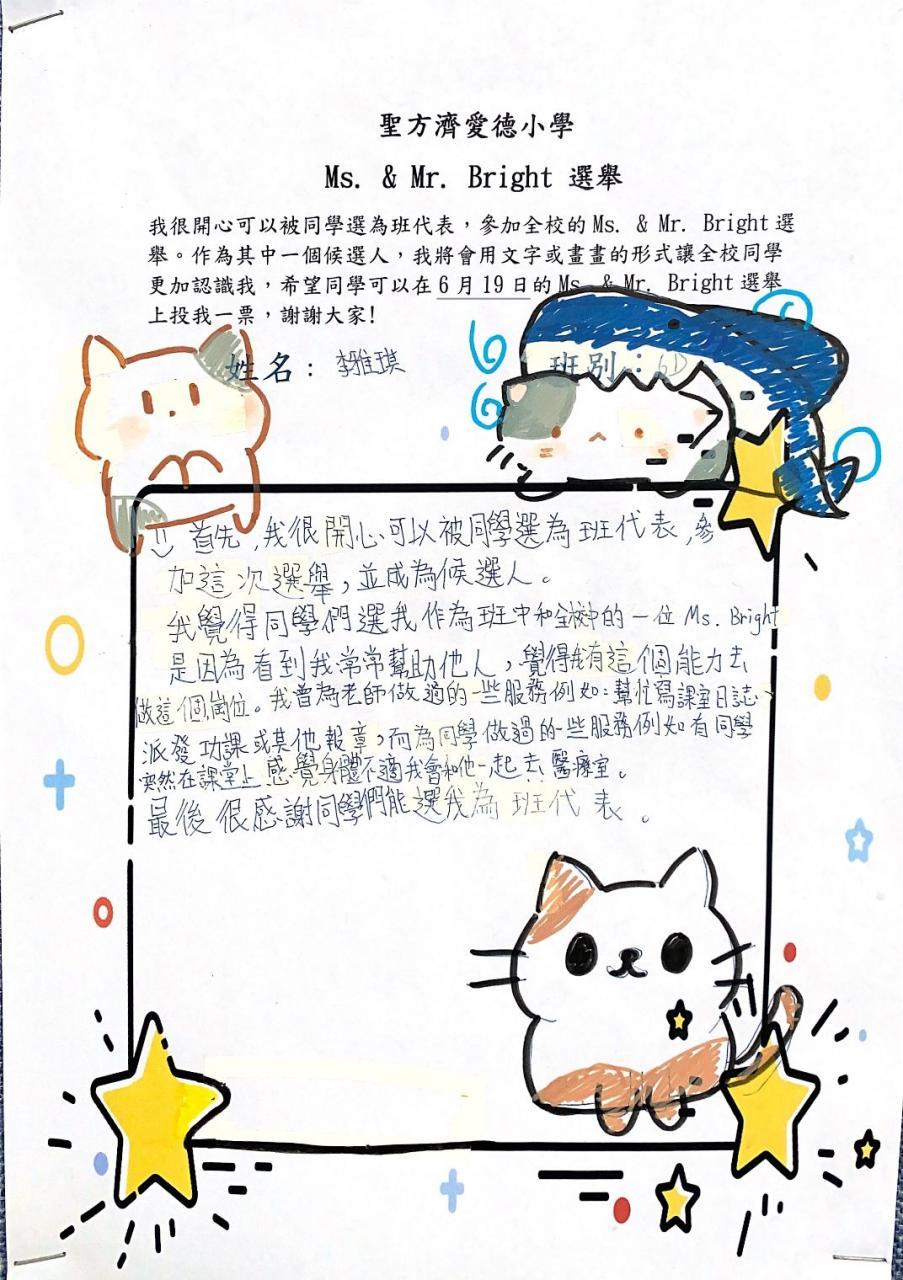 聖方濟愛德小學
Ms. & Mr. Bright 選舉
我很開心可以被同學選為班代表，參加全校的 Ms. & Mr. Bright 選
舉。作為其中一個候選人，我將會用文字或畫畫的形式讓全校同學
更加認識我，希望同學可以在 6 月 19 日的 Ms. & Mr. Bright 選舉
上投我一票，謝謝大家!
姓名：李雅琪
班別：6D
首先,我很開心可以被同學選為班代表,參
加這次選舉,並成為候選人。
我覺得同學們選我作為班中和全校中的一位 Ms. Bright
是因為看到我常常幫助他人,覺得我有這個能力去
做這個崗位。我曾為老師做過的一些服務例如:幫忙寫課室日誌、
派發功課或其他報章,而為同學做過的一些服務例如有同學
突然在課堂上感覺身體不適我會和他一起去醫療室。
最後很感謝同學們能選我為班代表。